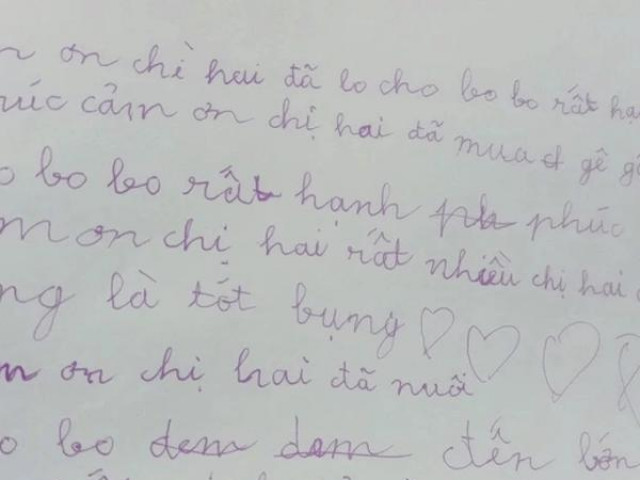 n ơn chỉ hai đã lo cho bo bo rất hạ
húc cảm ơn chị hai đã mua gê g
o bo bo rất hạnh phúc
m ơn chị hai rất nhiều chị hai
ng là tốt bụng
m ơn chị hai đã nuôi
o bo đem dem đến lớn